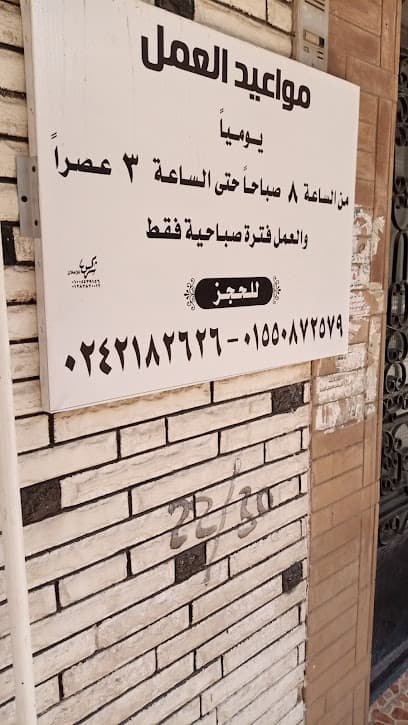 مواعيد العمل
يومياً
من الساعة ٨ صباحاً حتى الساعة ٣ عصراً
والعمل فترة صباحية فقط
للحجز
٠١٥٥٠٨٧٢٥٧٩ - ٠٢٤٢١٨٢٦٢٦
22/30